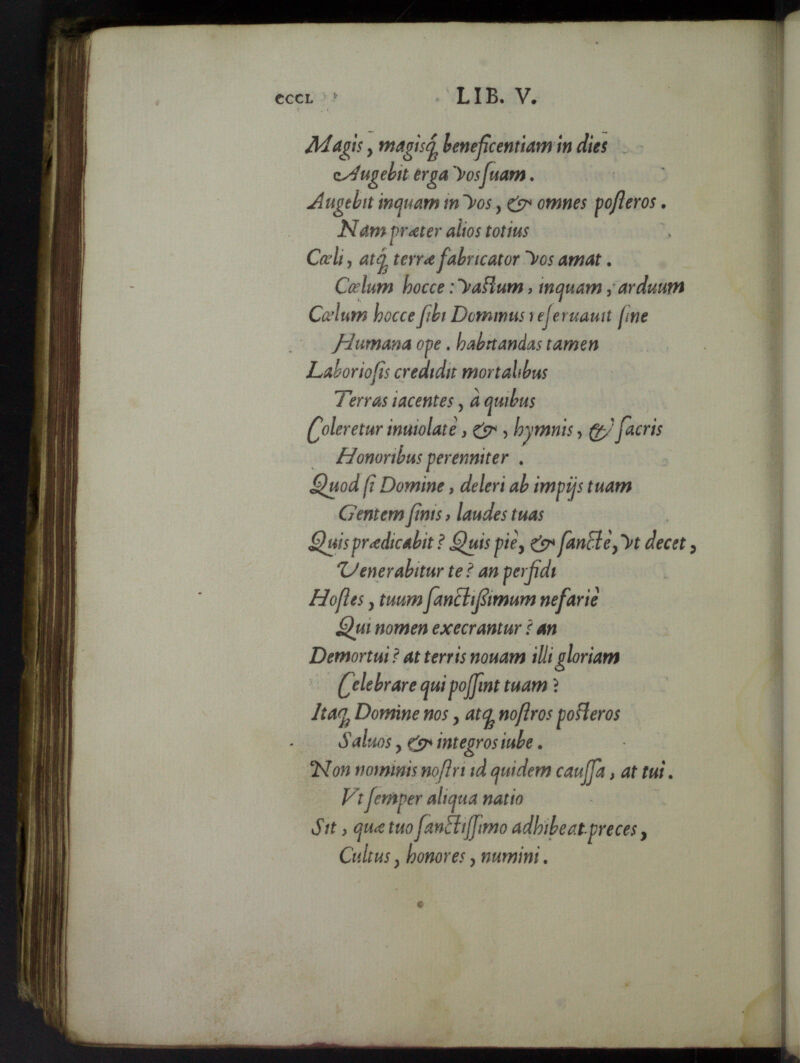 cccL LIB. V.
Magis, magisq́ꝫ beneficentiam in dies
Augebit erga vos ſuam.
Augebit inquam in vos, & omnes poſteros.
Nam præter alios totius
Cœli, atqꝫ terræ fabricator vos amat.
Cœlum hocce: vaſtum, inquam, arduum
Cœlum hocce ſibi Dominus reſeruauit ſine
Humana ope. habitandas tamen
Laborioſis credidit mortalibus
Terras iacentes, à quibus
Coleretur inuiolatè, &, hymnis, & ſacris
Honoribus perenniter.
Quod ſi Domine, deleri ab impijs tuam
Gentem ſinis, laudes tuas
Quis prædicabit? Quis piè, & ſanctè, vt decet,
Venerabitur te? an perfidi
Hoſtes, tuum ſanctißimum nefariè
Qui nomen execrantur? an
Demortui? at terris nouam illi gloriam
Celebrare qui poſſint tuam?
Itaqꝫ Domine nos, atqꝫ noſtros poſteros
Saluos, & integros iube.
Non nominis noſtri id quidem cauſſa, at tui.
Vt ſemper aliqua natio
Sit, quæ tuo ſanctiſſimo adhibeat preces,
Cultus, honores, numini.